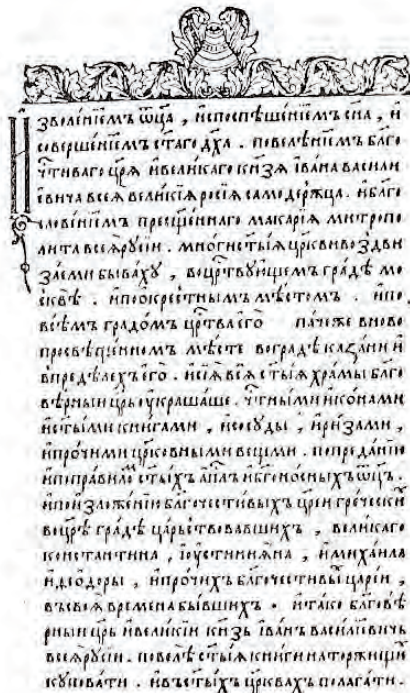 Изволенїемъ ѿца , и҆споспѣшенїемъ сн҃а , и҆
совершенїемъ ст҃аго дх҃а . повелѣнїемъ бл҃го
чт҃иваго цр҃я и҆великаго кн҃зя и҆ва́на васили
евича всея великїя росїя самоде́ржца . и҆бл҃го
словенїемъ преѡсщ҃еннаго мака́рїя митропо
ли́та всея̀русїи . мно́ги ст҃ыя цр҃кви воздви
за́еми быва́ху , воцр҃твующемъ гра́дѣ мо
сквѣ̀ . и҆поокрестнымъ мѣстомъ . и҆по
всѣмъ градо́мъ цр҃тва є҆гѡ̀ па́чеже вново
просвѣще́нномъ мѣстѣ воградѣ каза́ни и҆
впредѣлехъ є҆гѡ̀ . и҆сїя̀ вся̀ ст҃ыя хра́мы бл҃го
вѣрныи цр҃ь ᲂу҆краша́ше . чт҃ными и҆ко́нами
и҆ст҃ыми кни́гами , и҆сосу́ды , и҆ри́зами ,
и҆про́чими цр҃ко́вными вещми . попреда́нїю
и҆попра́вилѡ ст҃ыхъ а҆пл҃ъ и҆бг҃оно́сныхъ ѡ҃цъ .
и҆поизложе́нїю бл҃гочести́выхъ цр҃еи гре́чески
воцр҃ѣ гра́дѣ ца́рьствовавшихъ , вели́каго
константи́на , і҆ᲂусти́нияна , и҆михаи́ла
и҆ѳео́доры , и҆про́чихъ бл҃гочести́вы ца́реи ,
въ своя̀ времена̀ бы́вшихъ . и҆та́ко бл҃говѣ́
рныи цр҃ь и҆вели́кїи кн҃зь и҆ва́нъ васи́лїевичь
всея̀русїи . повелѣ̀ ст҃ыя кни́ги наторжищи
купова́ти . и҆въст҃ыхъ цр҃квахъ полага́ти .